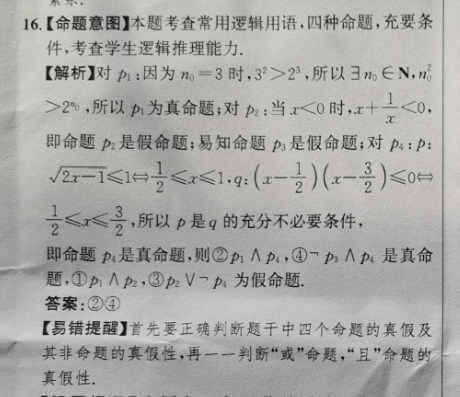 16.【命题意图】本题考查常用逻辑用语,四种命题,充要条
件,考查学生逻辑推理能力.
【解析】对 p₁:因为 n₀=3 时,3²>2³,所以∃n₀∈N,n₀²
>2ⁿ⁰,所以 p₁为真命题;对 p₂:当 x<0 时,x+1/x<0,
即命题 p₂是假命题;易知命题 p₃是假命题;对 p₄:p:
√(2x-1)≤1⇔1/2≤x≤1,q:(x-1/2)(x-3/2)≤0⇔
1/2≤x≤3/2,所以 p 是 q 的充分不必要条件,
即命题 p₄是真命题,则②p₁∧p₄,④¬p₃∧p₄ 是真命
题,①p₁∧p₂,③p₂∨¬p₄ 为假命题.
答案:②④
【易错提醒】首先要正确判断题干中四个命题的真假及
其非命题的真假性,再一一判断“或”命题,“且”命题的
真假性.